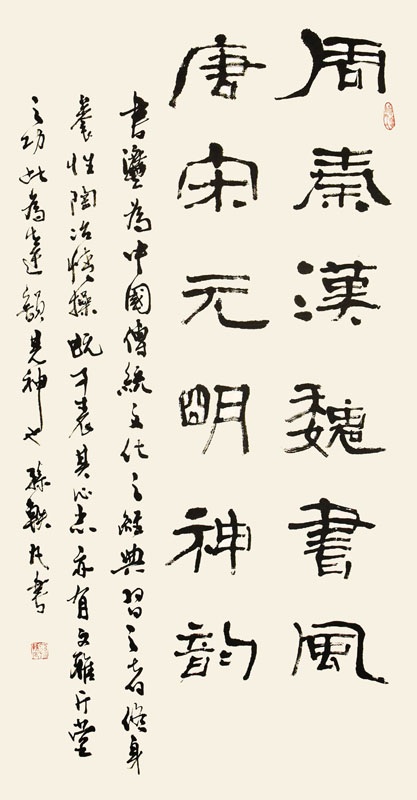 周秦漢魏書風
唐宋元明神韵
書藝為中國傳統文化之經典習之者修身
養性陶冶情操既可表其心志亦有文雅行
之功此為達韻見神也孫